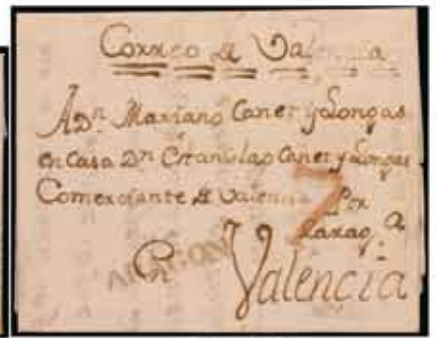 Correo de Valencia
A Dn. Mariano Caner y Longas
en Casa Dn. Estanislao Caner y Longas
Comerciante de Valencia Por
7
Zarag.a
ARAGON
Valencia